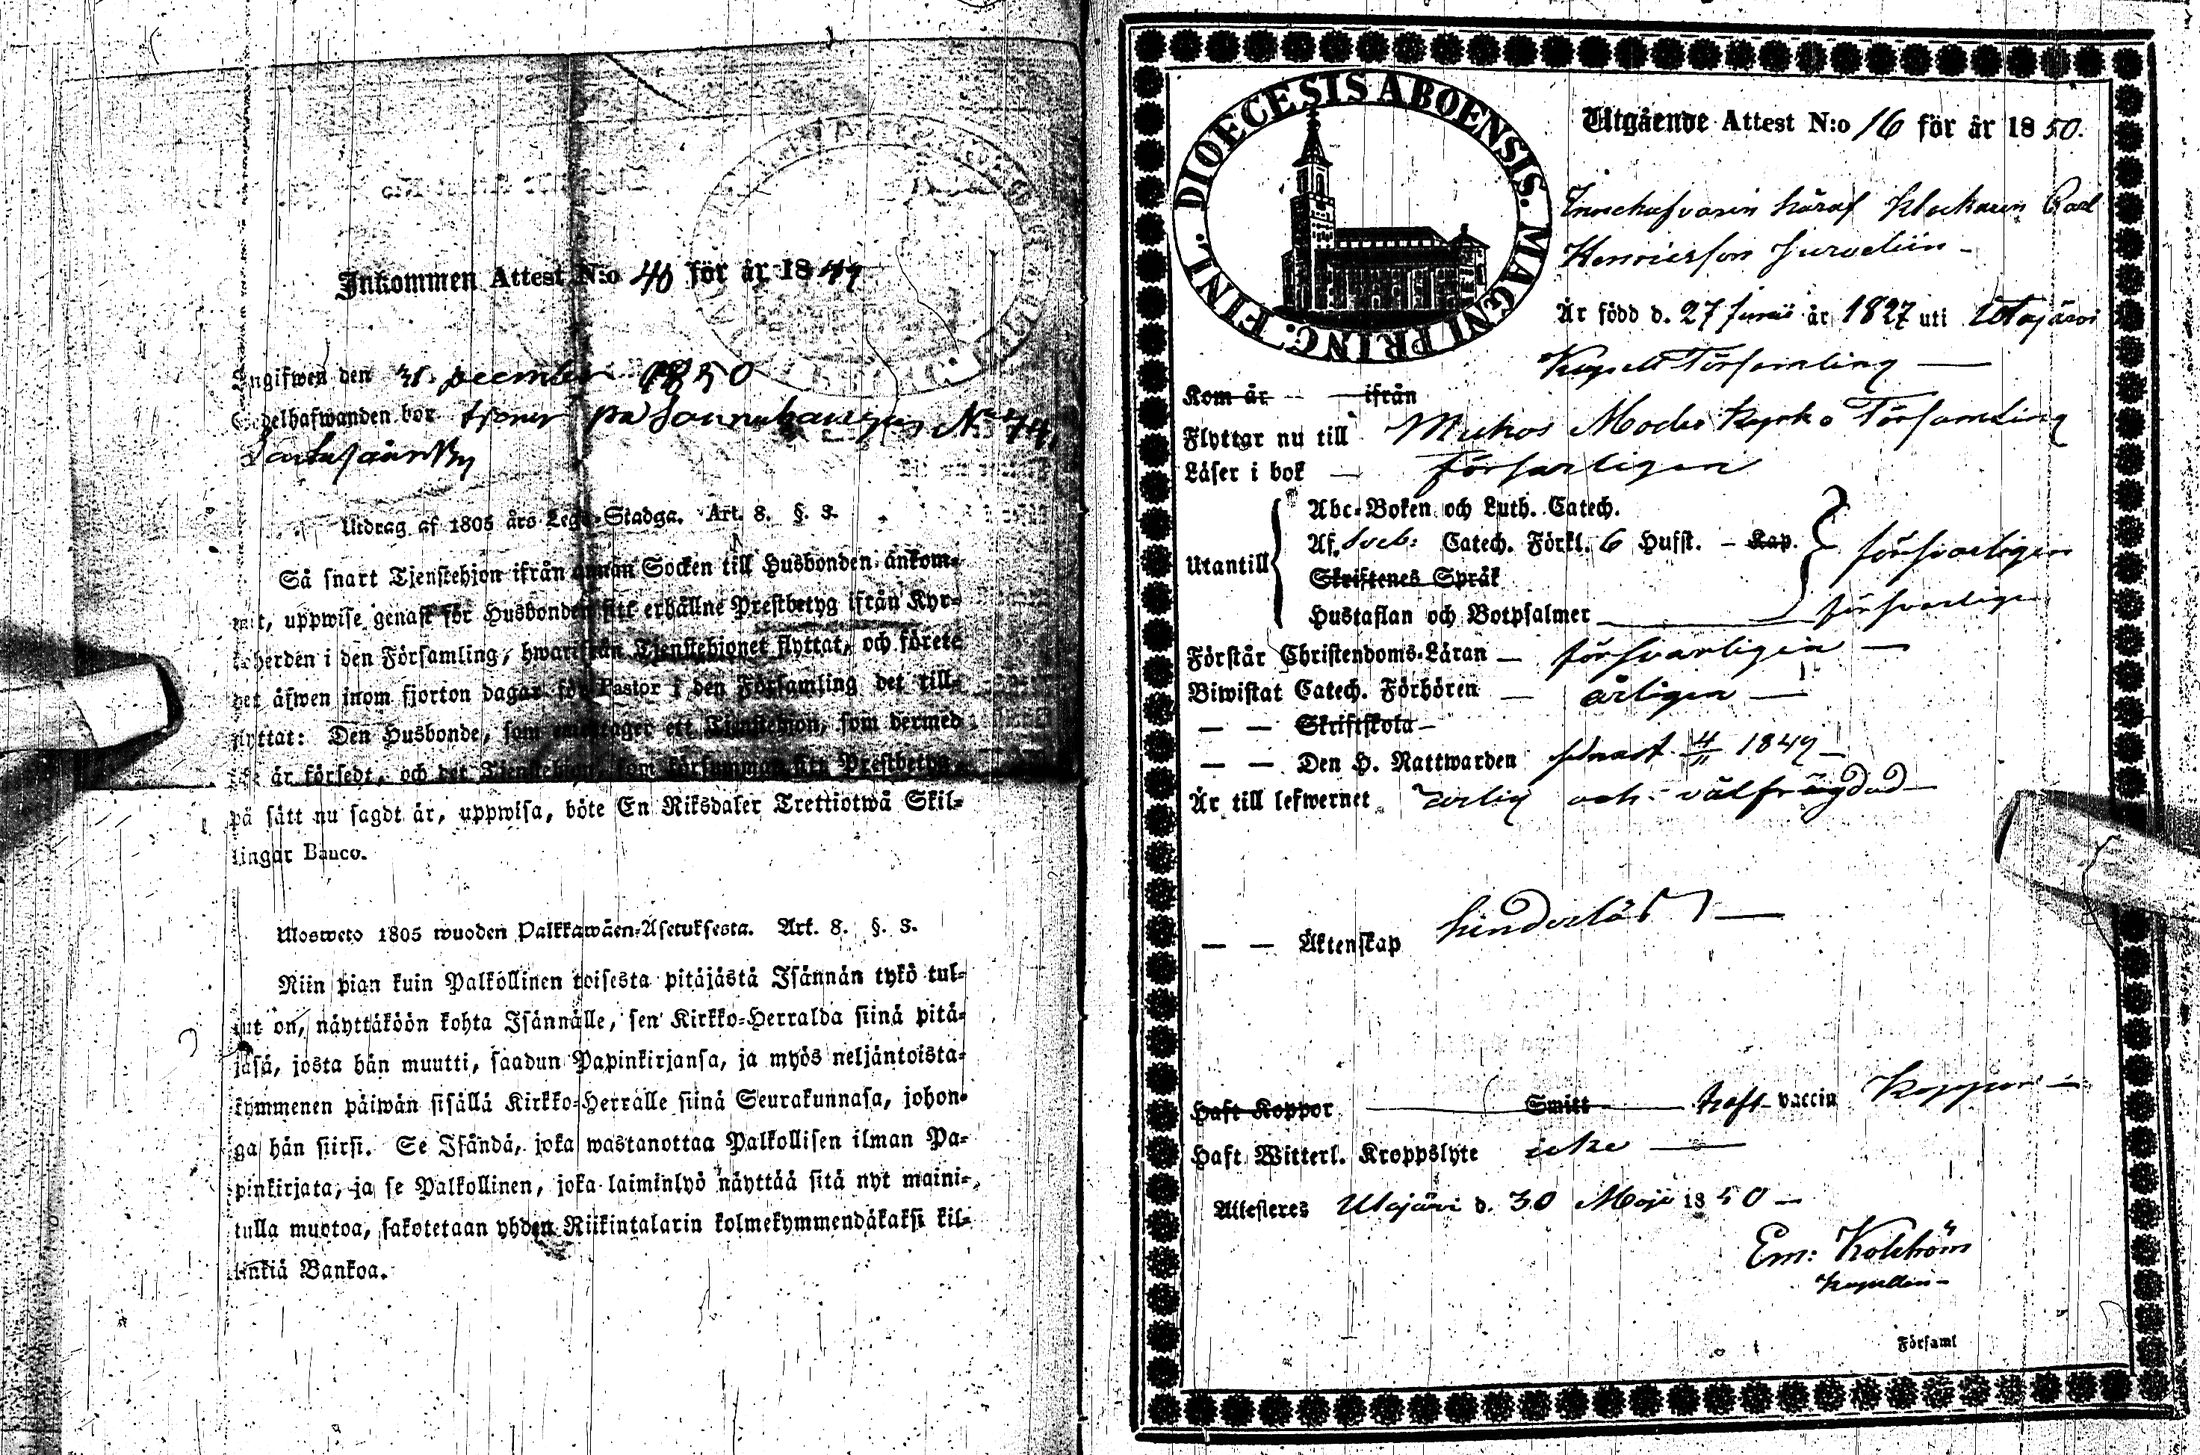 Inkommen Attest N:o 40 för år 1849
Ingifwen den 31 December 1850
bor tjener på N:o 44,
Utdrag af 1805 års Lego-Stadga. Art. 8. §. 3.
Så snart Tjenstehjon ifrån annan Socken till Husbonden ankom-
mit, uppwise genast för Husbonden sitt erhållne Prestbetyg ifrån Kyr-
koherden i den Församling, hwarifrån Tjenstehjonet flyttat, och förete
det äfwen inom fjorton dagar för Pastor i den Församling det till-
flyttat: Den Husbonde, som emottager ett Tjenstehjon, som dermed
icke är försedt, och det Tjenstehjon, som försummar sitt Prestbetyg,
på sätt nu sagdt är, uppwisa, böte En Riksdaler Trettiotwå Skil-
lingar Banco.
Ulosweto 1805 wuoden Palkkawäen-Asetuksesta. Art. 8. §. 3.
Niin pian kuin Palkollinen toisesta pitäjästä Isännän tykö tul-
lut on, näyttäköön kohta Isännälle, sen Kirkko-Herralda siinä pitä-
jäsä, josta hän muutti, saadun Papinkirjansa, ja myös neljäntoista-
kymmenen päiwän sisällä Kirkko-Herralle siinä Seurakunnasa, johon-
ga hän siirsi. Se Isändä, joka wastanottaa Palkollisen ilman Pa-
pinkirjata, ja se Palkollinen, joka laiminlyö näyttää sitä nyt maini-
tulla muotoa, sakotetaan yhden Riikintalarin kolmekymmendäkaksi kil-
linkiä Bankoa.
DIOECESIS ABOENSIS. MAGNI PRINC. FINL.
Utgående Attest N:o 16 för år 1850.
Klockaren
Henricsson
Är född d. 27 Junii år 1827 uti Utajärvi
Kapell Församling
Kom år ifrån
Flyttar nu till Muhos Moder Kyrko Församling
Läser i bok försvarligen
Utantill
Abc-Boken och Luth. Catech.
Af Sveb: Catech. Förkl. 6 Hufst. Kap. försvarligen
Skriftenes Språk
Hustaflan och Botpsalmer försvarligen
Förstår Christendoms-Läran försvarligen
Biwistat Catech. Förhören årligen
Skriftskola
Den H. Nattwarden senast 4/11 1849
Är till lefwernet ärlig och välfrägdad
Äktenskap hinderlös
Haft Koppor Smitt haft vaccin Koppor
Haft Witterl. Kroppslyte icke
Attesteres Utajärvi d. 30 Maji 1850
Em:
Kapellan
Församl